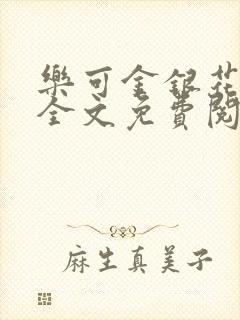 樂可金銀花
全文免費閱
麻生真美子